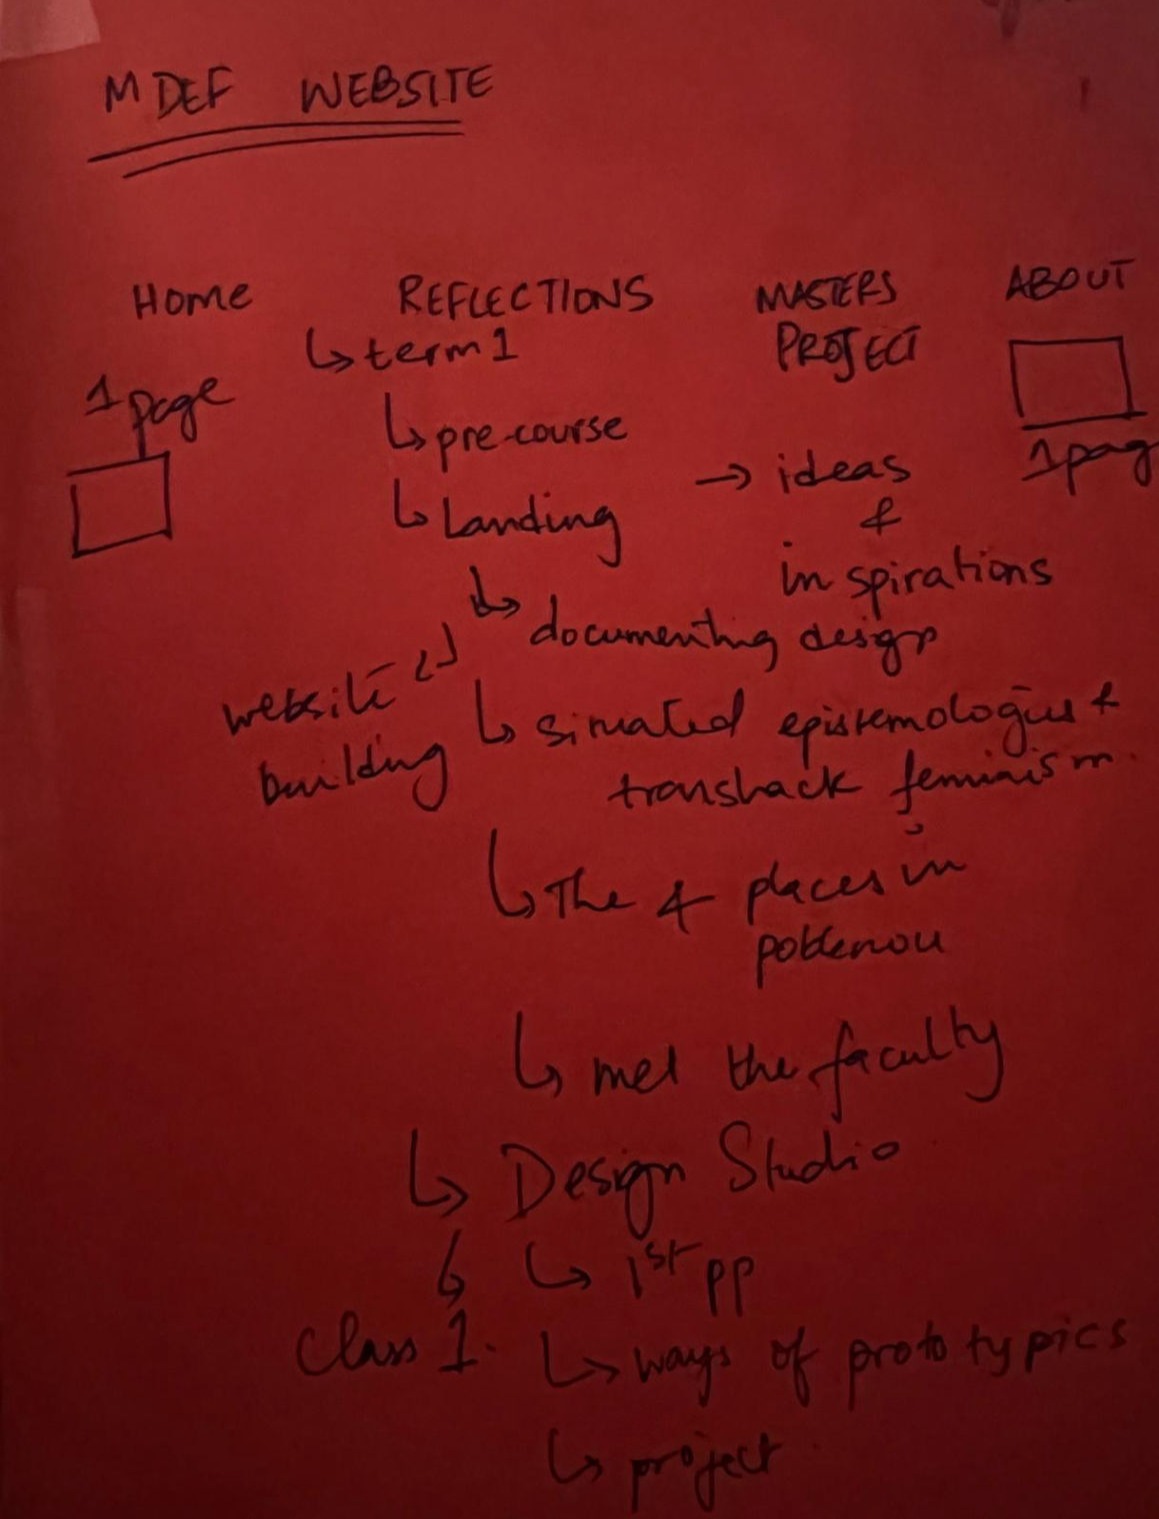 MDEF WEBSITE
Home
1 page
REFLECTIONS
↳ term 1
↳ pre-course
↳ Landing
↳ documenting design
website
building
↳ situated epistemologies &
transhack feminism
↳ The 4 places in
poblenou
↳ met the faculty
↳ Design Studio
↳ 1st pp
Class 1.
↳ ways of prototypics
↳ project
MASTERS
PROJECT
→ ideas
&
inspirations
ABOUT
1 pag